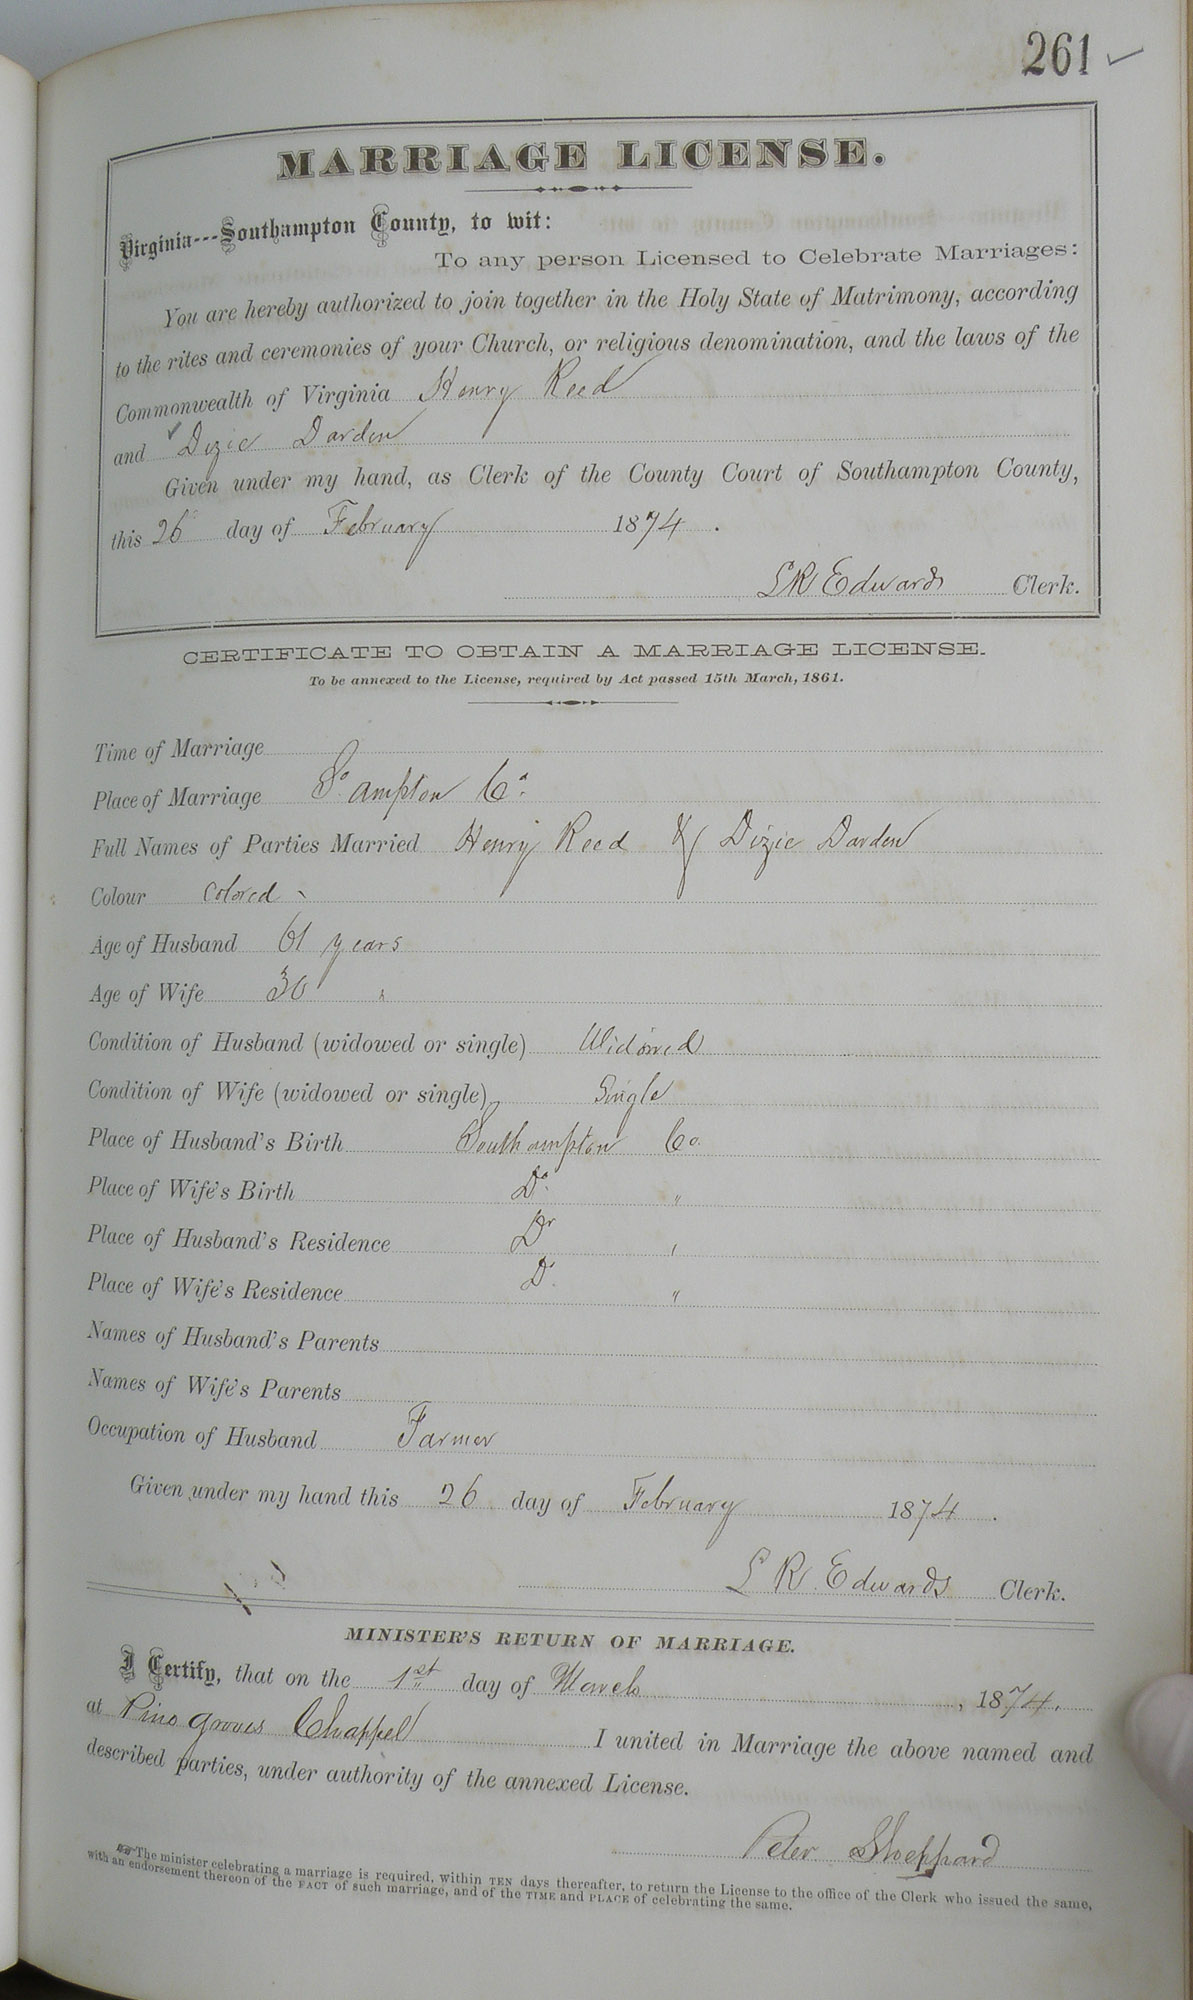 261
MARRIAGE LICENSE.
Virginia---Southampton County, to wit:
To any person Licensed to Celebrate Marriages:
You are hereby authorized to join together in the Holy State of Matrimony, according
to the rites and ceremonies of your Church, or religious denomination, and the laws of the
Commonwealth of Virginia Henry Reed
and Dizie Darden
Given under my hand, as Clerk of the County Court of Southampton County,
this 26 day of February 1874.
L R Edwards Clerk.
CERTIFICATE TO OBTAIN A MARRIAGE LICENSE.
To be annexed to the License, required by Act passed 15th March, 1861.
Time of Marriage
Place of Marriage So.ampton Co.
Full Names of Parties Married Henry Reed & Dizie Darden
Colour Colored
Age of Husband 61 years
Age of Wife 30 "
Condition of Husband (widowed or single) Widowed
Condition of Wife (widowed or single) Single
Place of Husband's Birth Southampton Co.
Place of Wife's Birth Do. "
Place of Husband's Residence Do "
Place of Wife's Residence Do. "
Names of Husband's Parents
Names of Wife's Parents
Occupation of Husband Farmer
Given under my hand this 26 day of February 1874.
L R Edwards Clerk.
MINISTER'S RETURN OF MARRIAGE.
I Certify, that on the 1st day of March, 1874.
at Pine groves Chappel I united in Marriage the above named and
described parties, under authority of the annexed License.
Peter Sheppard
The minister celebrating a marriage is required, within TEN days thereafter, to return the License to the office of the Clerk who issued the same,
with an endorsement thereon of the FACT of such marriage, and of the TIME and PLACE of celebrating the same.